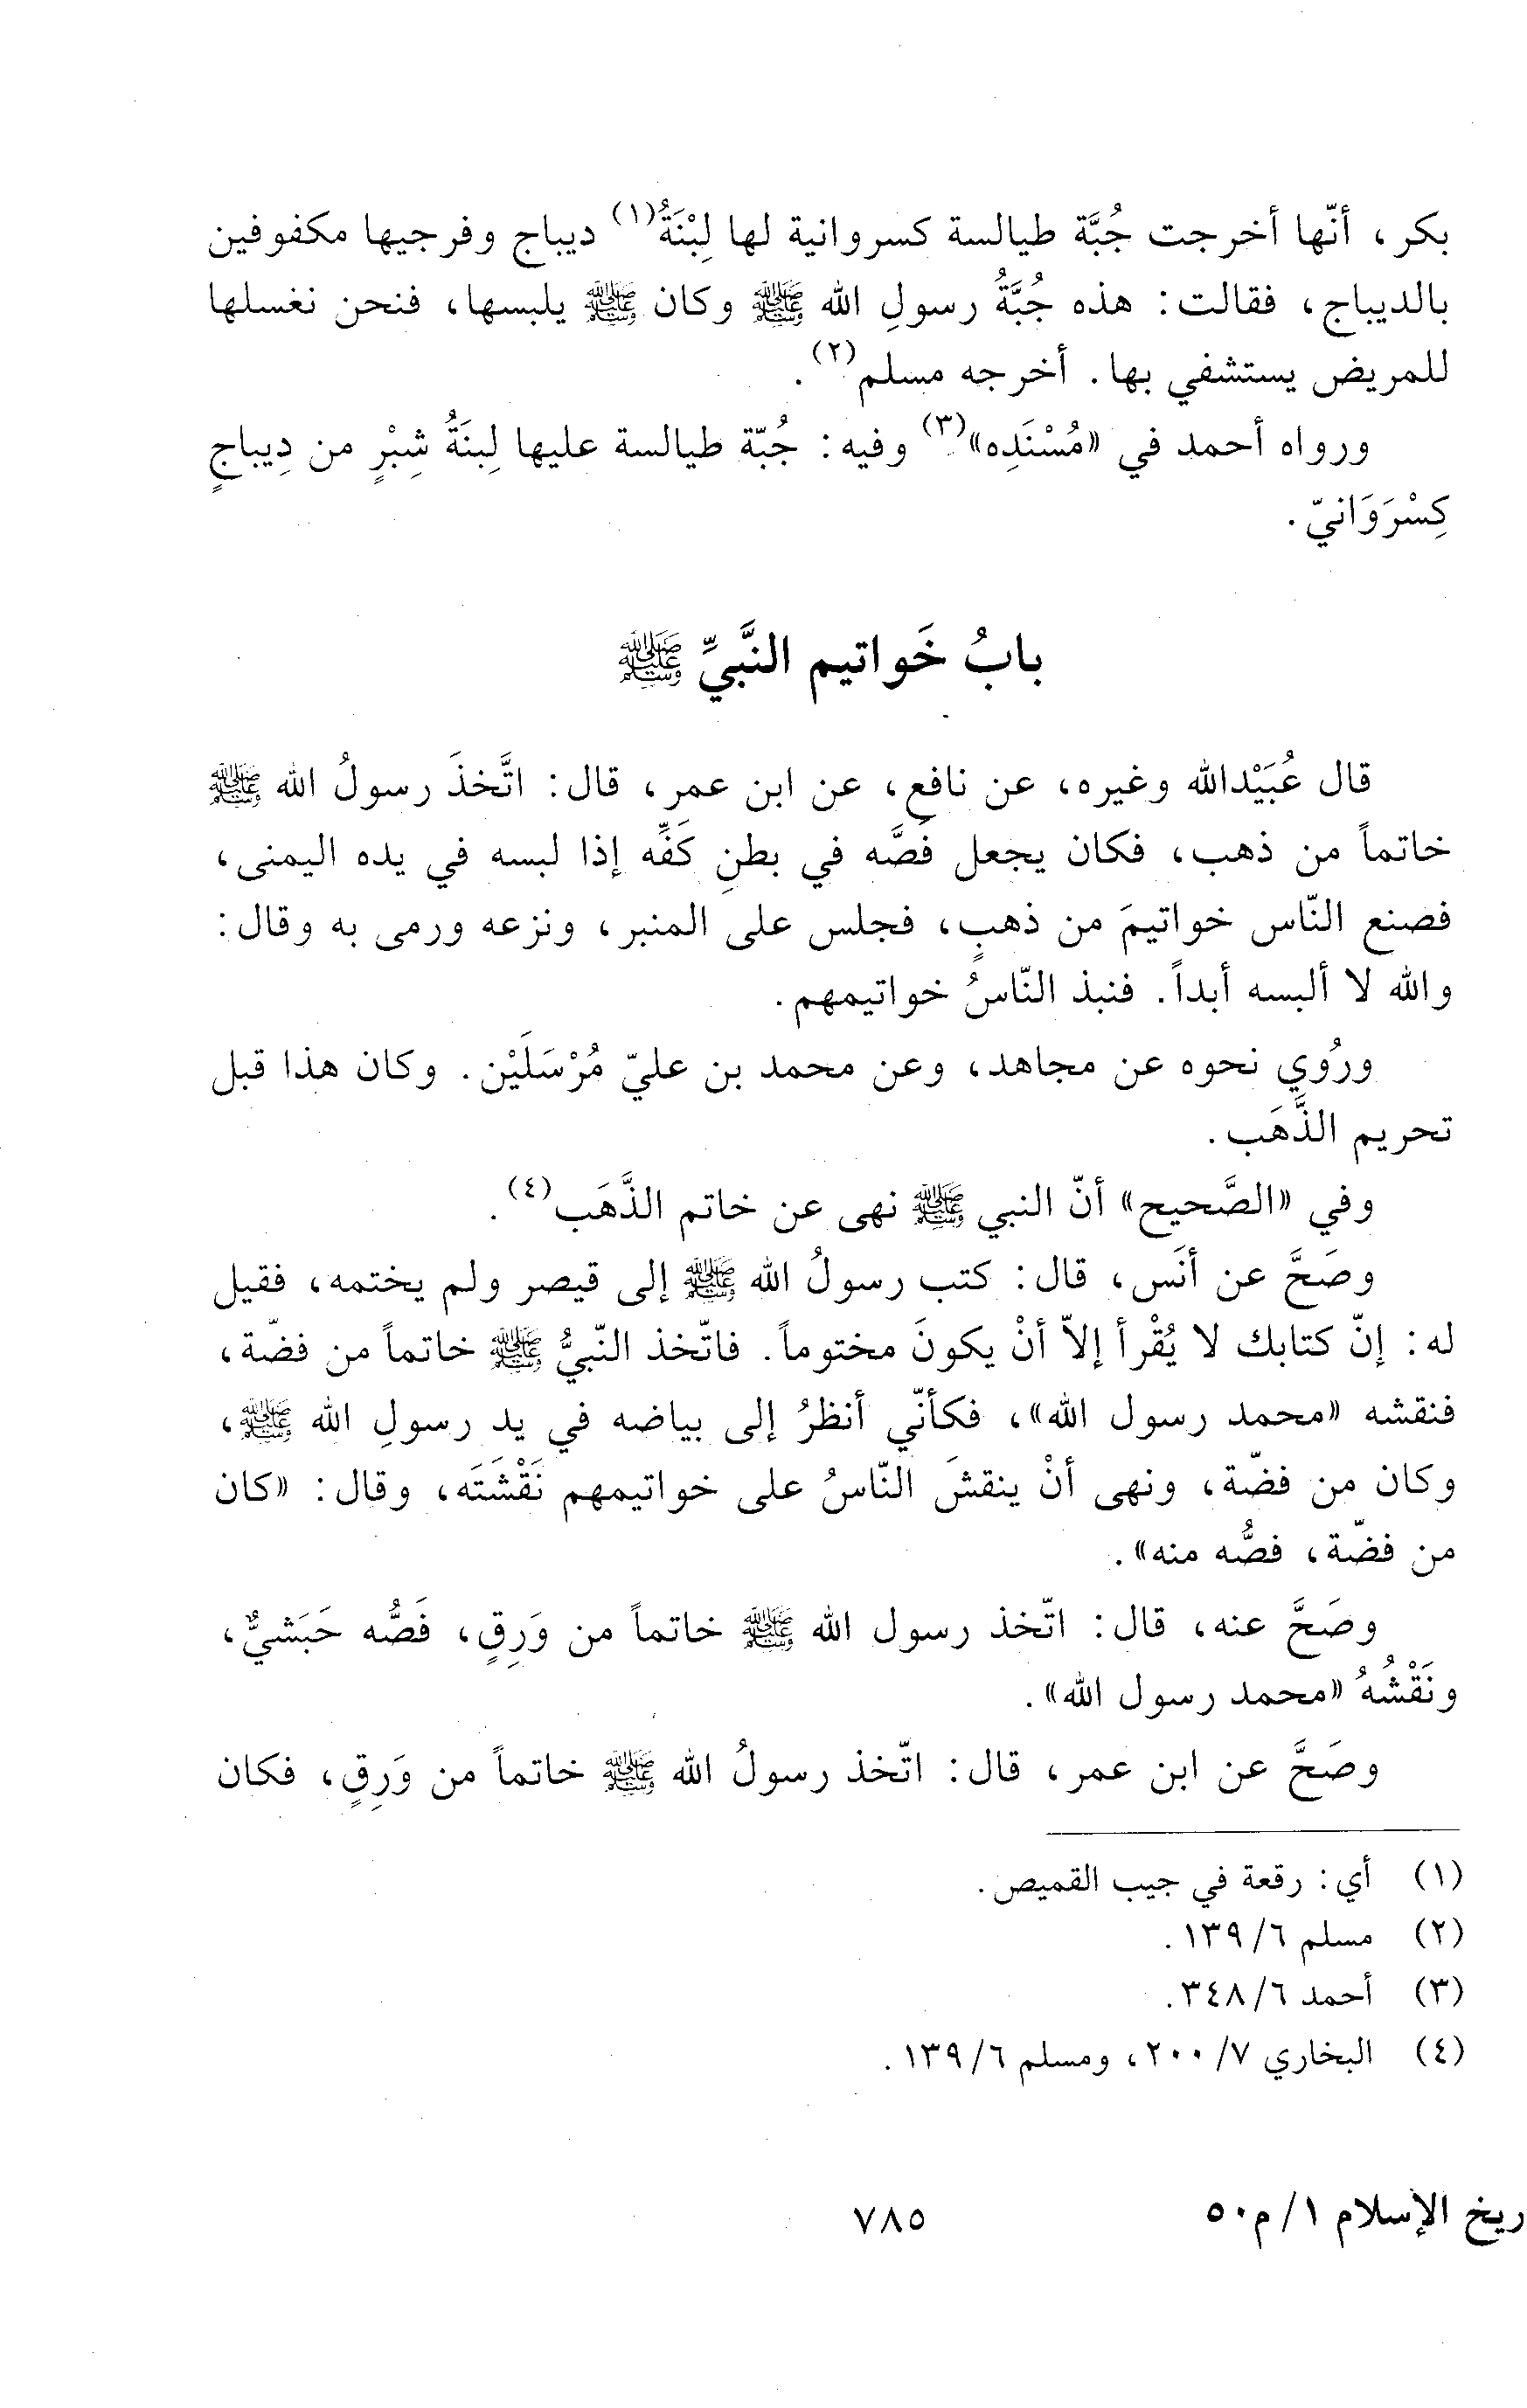 بكر، أنّها أخرجت جُبَّة طيالسة كسروانية لها لِبْنَةُ(١) ديباج وفرجيها مكفوفين
بالديباج، فقالت: هذه جُبَّةُ رسولِ الله ﷺ وكان ﷺ يلبسها، فنحن نغسلها
للمريض يستشفي بها. أخرجه مسلم(٢).
ورواه أحمد في «مُسْنَدِه»(٣) وفيه: جُبّة طيالسة عليها لِبنَةُ شِبْرٍ من دِيباجٍ
كِسْرَوَانيّ.
بابُ خَواتيم النَّبيِّ ﷺ
قال عُبَيْدالله وغيره، عن نافع، عن ابن عمر، قال: اتَّخذَ رسولُ الله ﷺ
خاتماً من ذهب، فكان يجعل فَصَّه في بطنِ كَفِّه إذا لبسه في يده اليمنى،
فصنع النّاس خواتيمَ من ذهبٍ، فجلس على المنبر، ونزعه ورمى به وقال:
والله لا ألبسه أبداً. فنبذ النّاسُ خواتيمهم.
ورُوِي نحوه عن مجاهد، وعن محمد بن عليّ مُرْسَلَيْن. وكان هذا قبل
تحريم الذَّهَب.
وفي «الصَّحيح» أنّ النبي ﷺ نهى عن خاتم الذَّهَب(٤).
وصَحَّ عن أنَس، قال: كتب رسولُ الله ﷺ إلى قيصر ولم يختمه، فقيل
له: إنّ كتابك لا يُقْرأ إلاّ أنْ يكونَ مختوماً. فاتّخذ النّبيُّ ﷺ خاتماً من فضّة،
فنقشه «محمد رسول الله»، فكأنّي أنظرُ إلى بياضه في يد رسولِ الله ﷺ،
وكان من فضّة، ونهى أنْ ينقشَ النّاسُ على خواتيمهم نَقْشَتَه، وقال: «كان
من فضّة، فصُّه منه».
وصَحَّ عنه، قال: اتّخذ رسول الله ﷺ خاتماً من وَرِقٍ، فَصُّه حَبَشيٌّ،
ونَقْشُهُ «محمد رسول الله».
وصَحَّ عن ابن عمر، قال: اتّخذ رسولُ الله ﷺ خاتماً من وَرِقٍ، فكان
(١) أي: رقعة في جيب القميص.
(٢) مسلم ٦/ ١٣٩.
(٣) أحمد ٦/ ٣٤٨.
(٤) البخاري ٧/ ٢٠٠، ومسلم ٦/ ١٣٩.
ريخ الإسلام ١/ م٥٠
٧٨٥